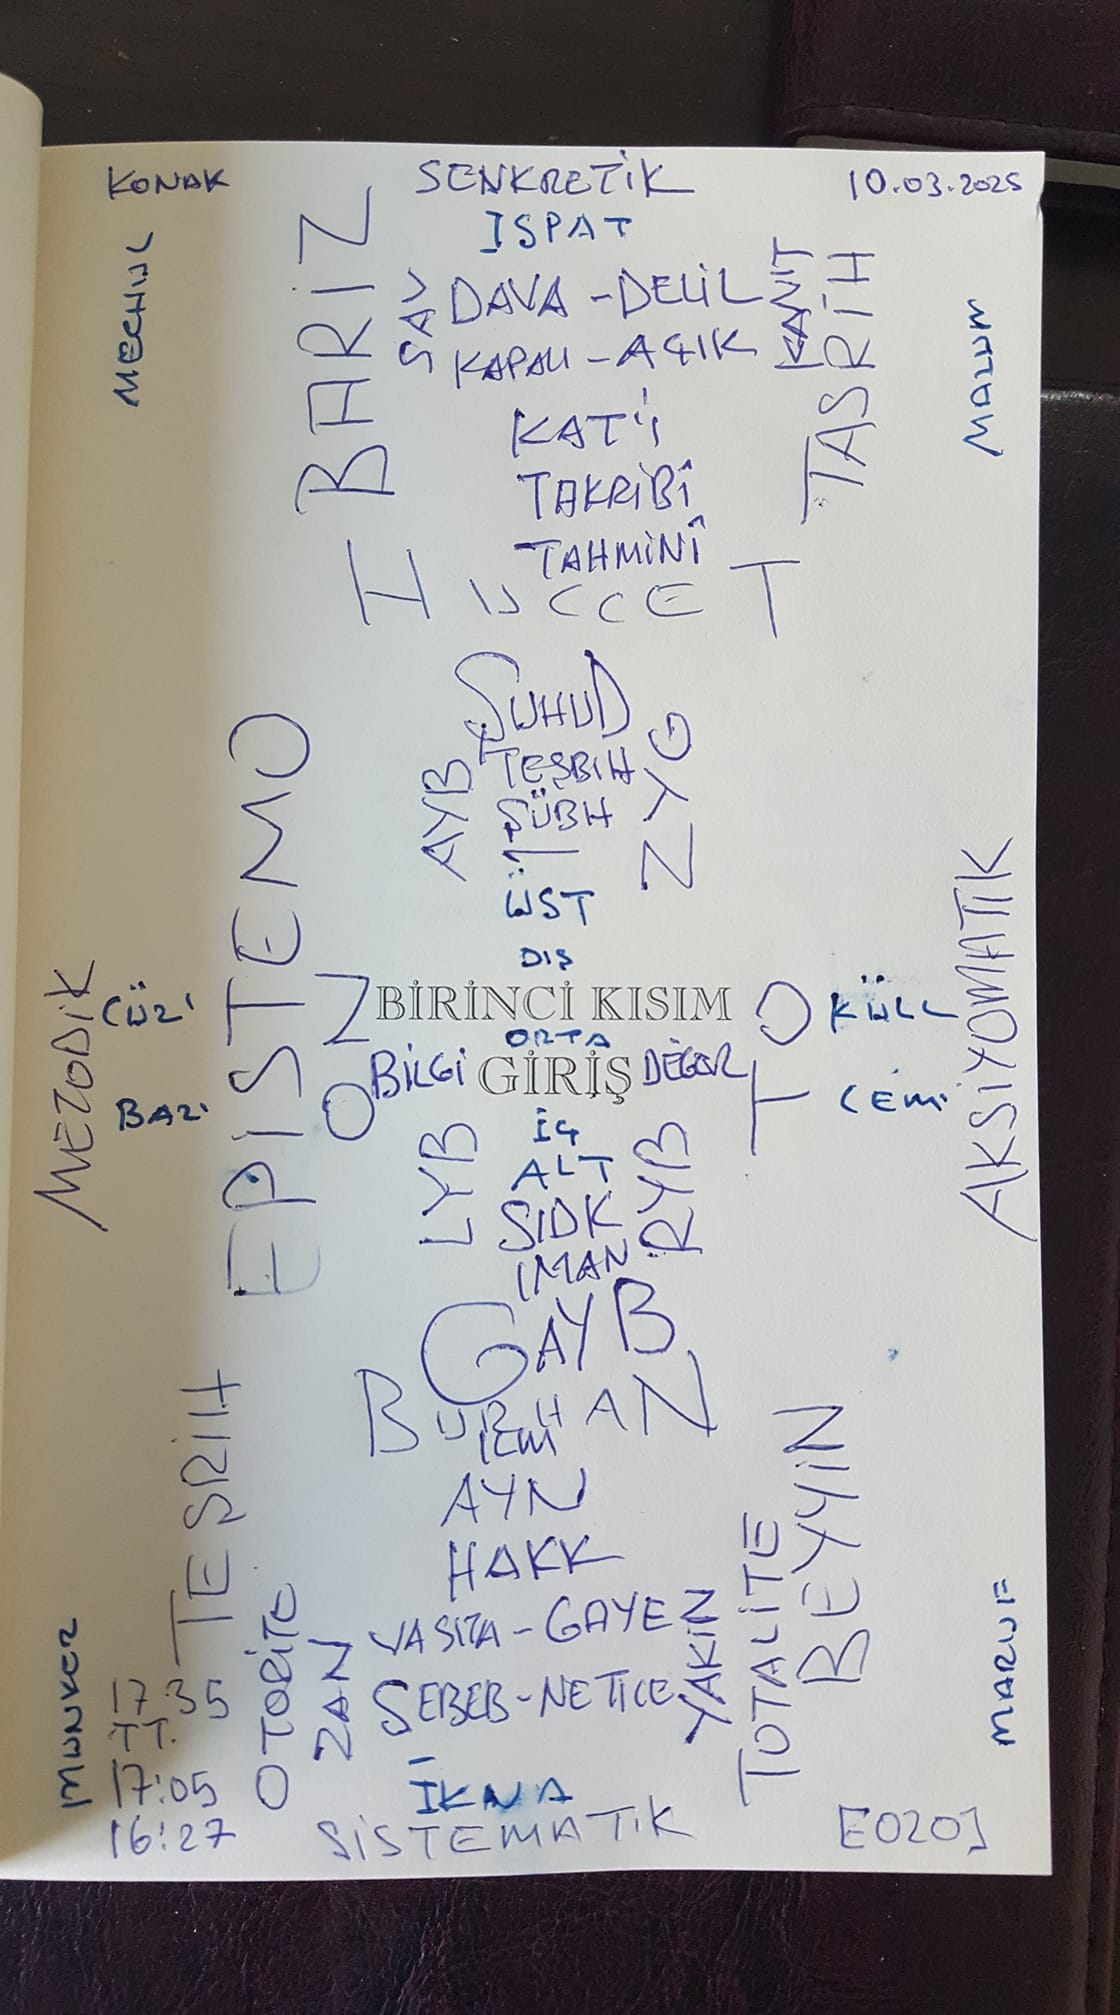 KONAK
SENKRETİK
10.03.2025
İSPAT
MECHUL
BARİZ
SAV
DAVA - DELİL
KANIT
TASRİH
MALUM
KAPALI - AÇIK
KAT'İ
TAKRİBÎ
TAHMİNÎ
HUCCET
ŞUHUD
TEŞBİH
ŞÜBH
AYB
ZYG
ÜST
DIŞ
EPİSTEMO
ON
TO
BİRİNCİ KISIM
CÜZİ
KÜLL
METODİK
AKSİYOMATİK
ORTA
BİLGİ
GİRİŞ
DEĞER
BAZI
CEMİ
İÇ
ALT
LYB
RYB
SIDK
IMAN
GAYB
BURHAN
İLM
AYN
HAKK
TEŞRİH
BEYYİN
VASITA - GAYE
SEBEB - NETİCE
OTORİTE
ZAN
YAKİN
TOTALİTE
MUNKER
MARUF
17:35
TT.
17:05
16:27
İKNA
SİSTEMATİK
[E020]